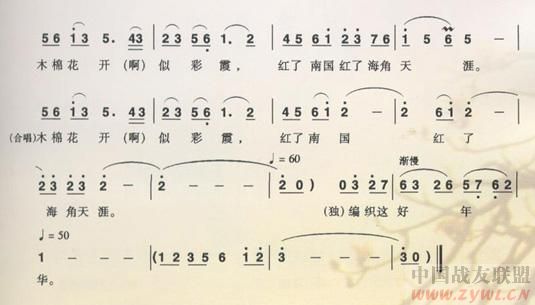 5 6 1 3 5. 4 3 | 2 3 5 6 1. 2 | 4 5 6 1 2 3 7 6 | 1 5 6 5 — |
木棉花 开(啊)似 彩 霞，红了 南国红了 海角 天 涯。
5 6 1 3 5. 4 3 | 2 3 5 6 1. 2 | 4 5 6 1 2 — | 2 6 1 2 |
(合唱)木棉花 开(啊)似 彩 霞，红了南 国 红 了
♩= 60 渐慢
2 3 2 3 2 — | 2 — — — | 2 0 ) 0 3 2 7 | 6 3 2 6 5 7 6 2 |
海 角天 涯。 (独)编 织这 好 年
♩= 50
1 — — — | (1 2 3 5 6 1 2 | 3 — — — | 3 0 ) ‖
华。
中国战友联盟
www.ZYWL.CN